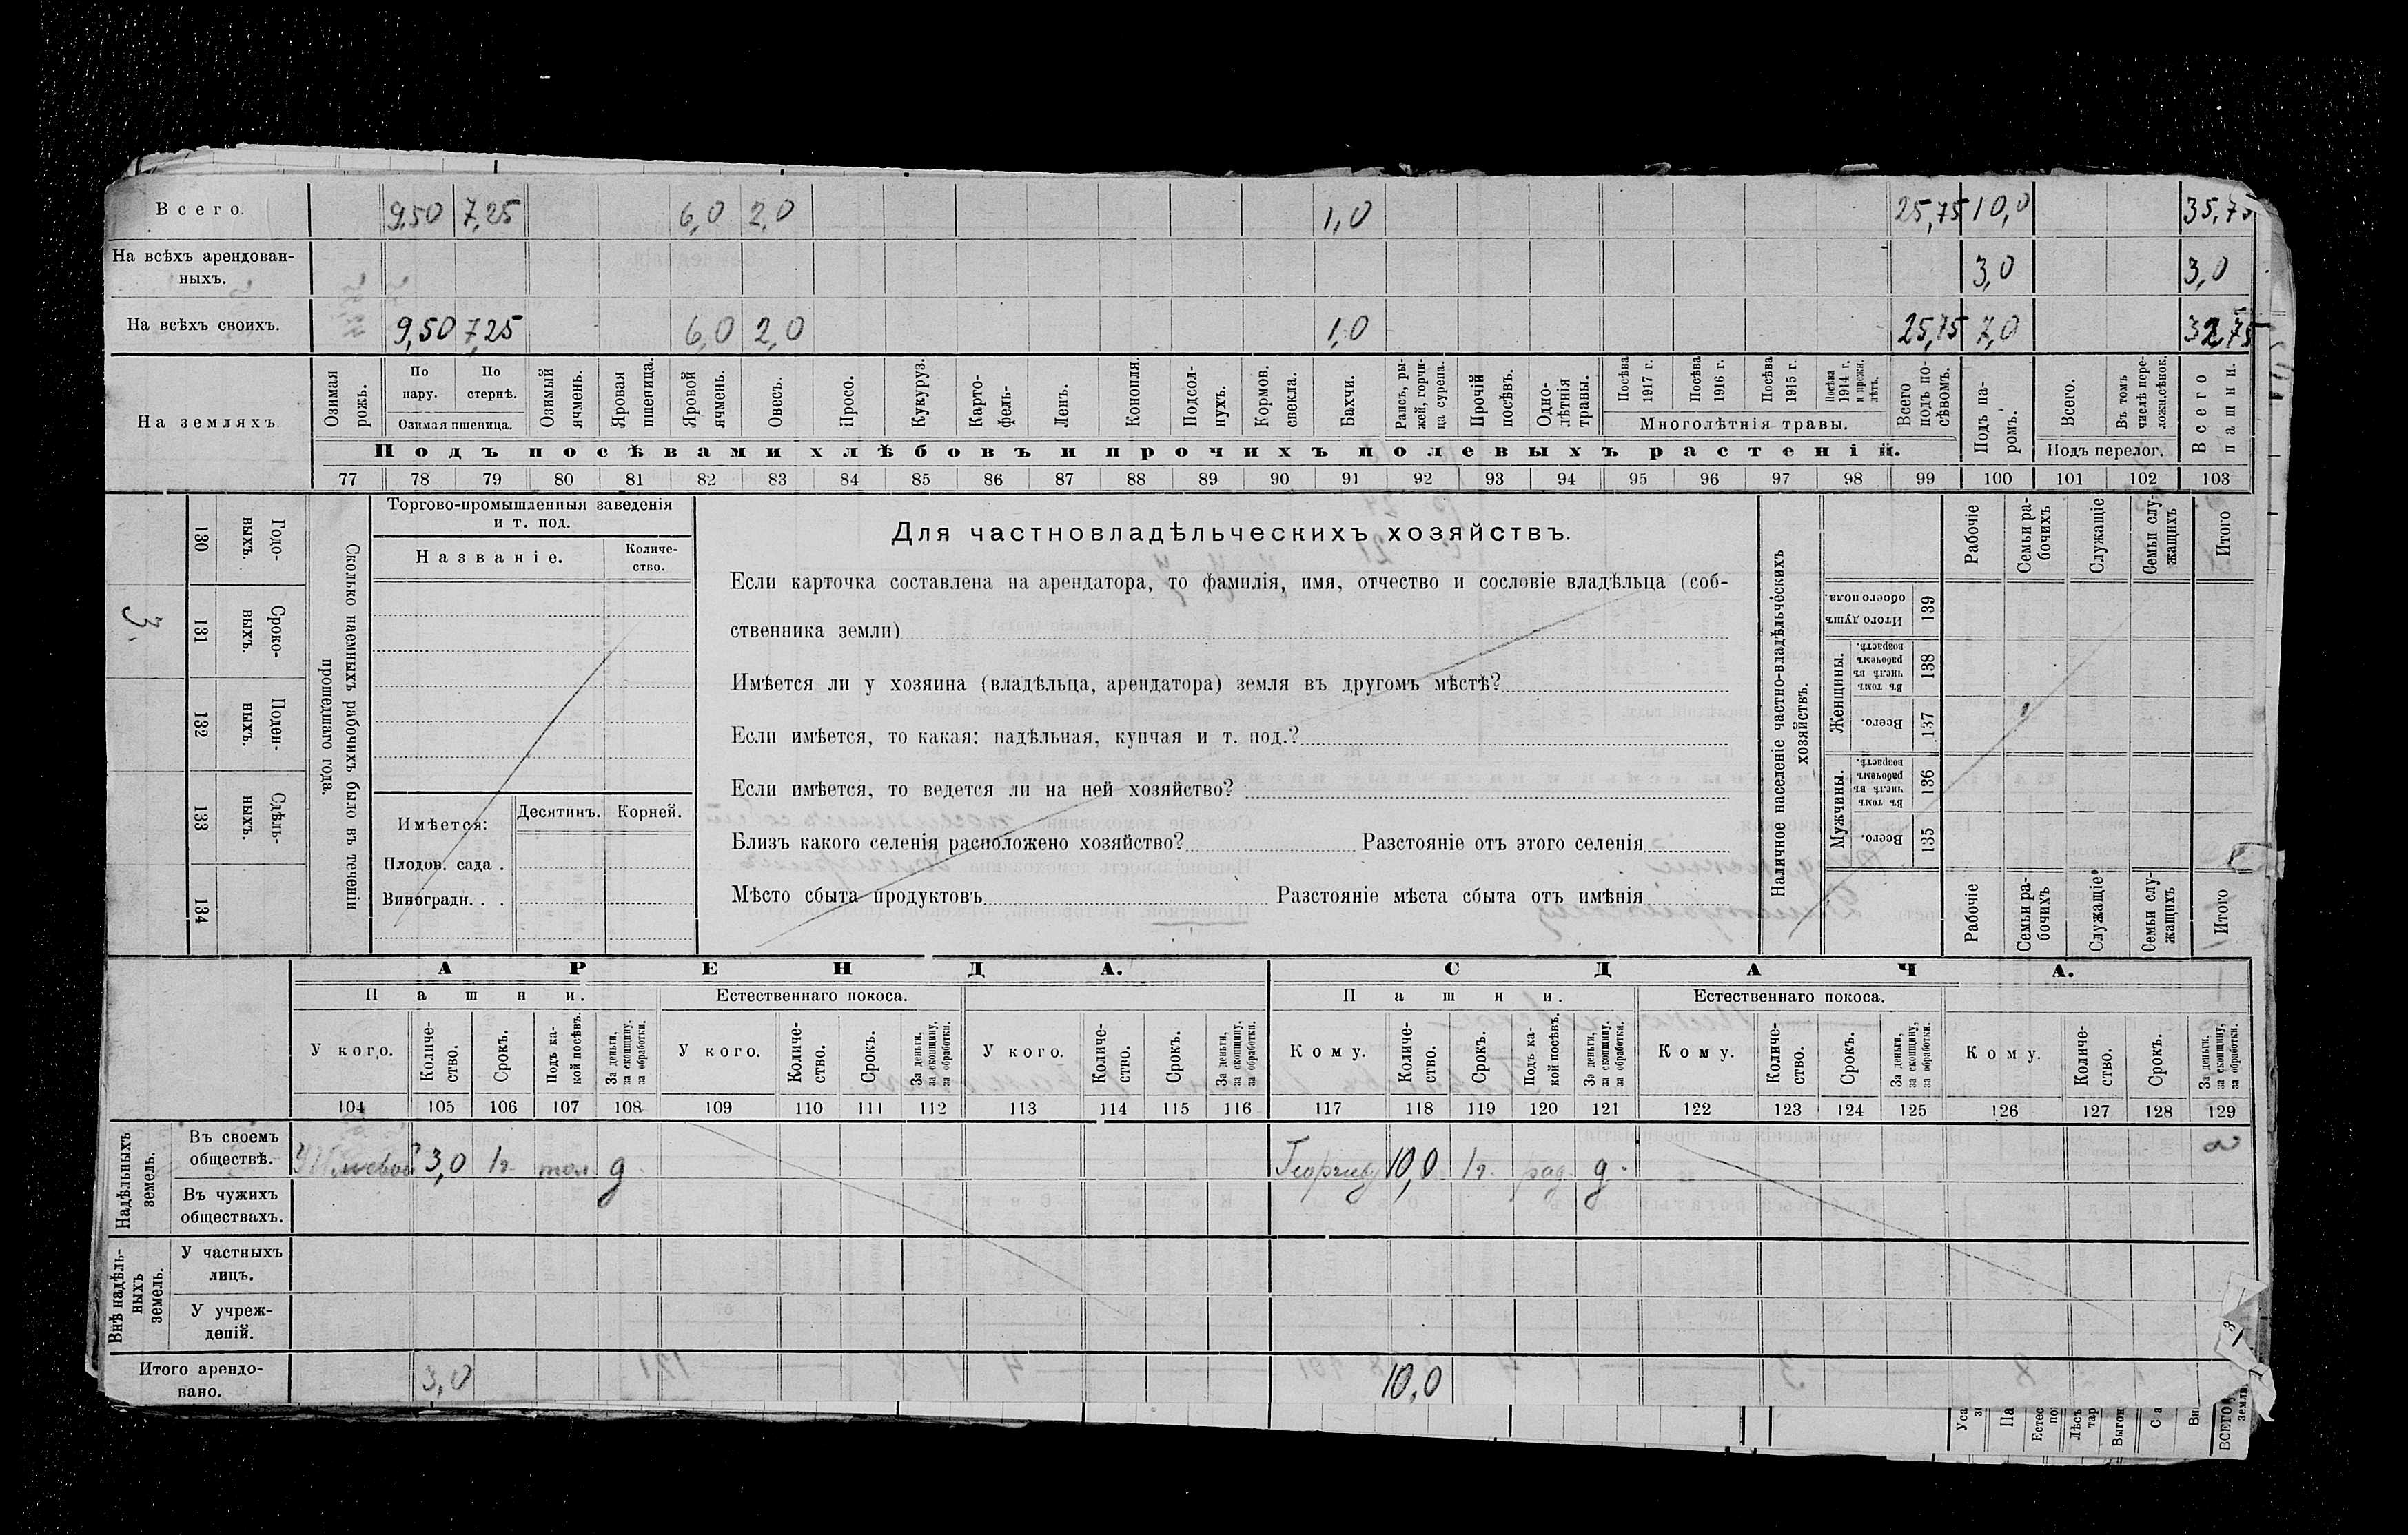 Всего. 9,50 7,25 6,0 2,0 1,0 25,75 10,0 35,75
На всѣхъ арендован-
ныхъ. 3,0 3,0
На всѣхъ своихъ. 9,50 7,25 6,0 2,0 1,0 25,75 7,0 32,75
На земляхъ
Озимая рожь.
По пару.
По стернѣ.
Озимая пшеница.
Озимый ячмень.
Яровая пшеница.
Яровой ячмень.
Овесъ.
Просо.
Кукуруз.
Карто-
фель-
Ленъ.
Конопля.
Подсол-
нухъ.
Кормов. свекла.
Бахчи.
Рапсъ, ры-
жей, горчи-
ца сурепа.
Прочій посѣвъ.
Одно-
лѣтнія травы.
Посѣва 1917 г.
Посѣва 1916 г.
Посѣва 1915 г.
Посѣва 1914 г. и прежн. лѣтъ.
Многолѣтнія травы.
Всего подъ по-
сѣвомъ.
Подъ па-
ромъ.
Всего.
Въ томъ числѣ пере-
ложн.сѣнок.
Подъ перелог.
Всего пашни.
Подъ посѣвами хлѣбовъ и прочихъ полевыхъ растеній.
77 78 79 80 81 82 83 84 85 86 87 88 89 90 91 92 93 94 95 96 97 98 99 100 101 102 103
3.
130 Годо-
выхъ.
131 Сроко-
выхъ.
132 Поден-
ныхъ.
133 Сдѣль-
ныхъ.
134
Сколько наемныхъ рабочихъ было въ теченіи
прошедшаго года.
Торгово-промышленныя заведенія
и т. под.
Названіе.
Количе-
ство.
Имѣется:
Десятинъ.
Корней.
Плодов. сада .
Виноградн. . .
Для частновладѣльческихъ хозяйствъ.
Если карточка составлена на арендатора, то фамилія, имя, отчество и сословіе владѣльца (соб-
ственника земли)
Имѣется ли у хозяина (владѣльца, арендатора) земля въ другомъ мѣстѣ?
Если имѣется, то какая: надѣльная, купчая и т. под.?
Если имѣется, то ведется ли на ней хозяйство?
Близъ какого селенія расположено хозяйство? Разстояніе отъ этого селенія
Мѣсто сбыта продуктовъ Разстояніе мѣста сбыта отъ имѣнія
Наличное населеніе частно-владѣльческихъ
хозяйствъ.
Рабочіе
Семьи ра-
бочихъ
Служащіе
Семьи слу-
жащихъ
Итого
Итого душъ обоего пола. 139
Женщины.
Въ томъ числѣ въ рабочемъ возрастѣ. 138
Всего. 137
Мужчины.
Въ томъ числѣ въ рабочемъ возрастѣ. 136
Всего. 135
Рабочіе
Семьи ра-
бочихъ
Служащіе
Семьи слу-
жащихъ
Итого
АРЕНДА.
СДАЧА.
Пашни.
Естественнаго покоса.
Пашни.
Естественнаго покоса.
У кого.
Количе-
ство.
Срокъ.
Подъ ка-
кой посѣвъ.
За деньги, за скопщину, за обработки.
У кого.
Количе-
ство.
Срокъ.
За деньги, за скопщину, за обработки.
У кого.
Количе-
ство.
Срокъ.
За деньги, за скопщину, за обработки.
Кому.
Количе-
ство.
Срокъ.
Подъ ка-
кой посѣвъ.
За деньги, за скопщину, за обработки.
Кому.
Количе-
ство.
Срокъ.
За деньги, за скопщину, за обработки.
Кому.
Количе-
ство.
Срокъ.
За деньги, за скопщину, за обработки.
104 105 106 107 108 109 110 111 112 113 114 115 116 117 118 119 120 121 122 123 124 125 126 127 128 129
Надѣльныхъ земель.
Въ своемъ
обществѣ. 3,0 1г. д. Георгіеву 10,0 1г. д.
Въ чужихъ
обществахъ.
Внѣ надѣль-
ныхъ земель.
У частныхъ
лицъ.
У учреж-
деній.
Итого арендо-
вано. 3,0 10,0
Выгон
ВСЕГО
земли.